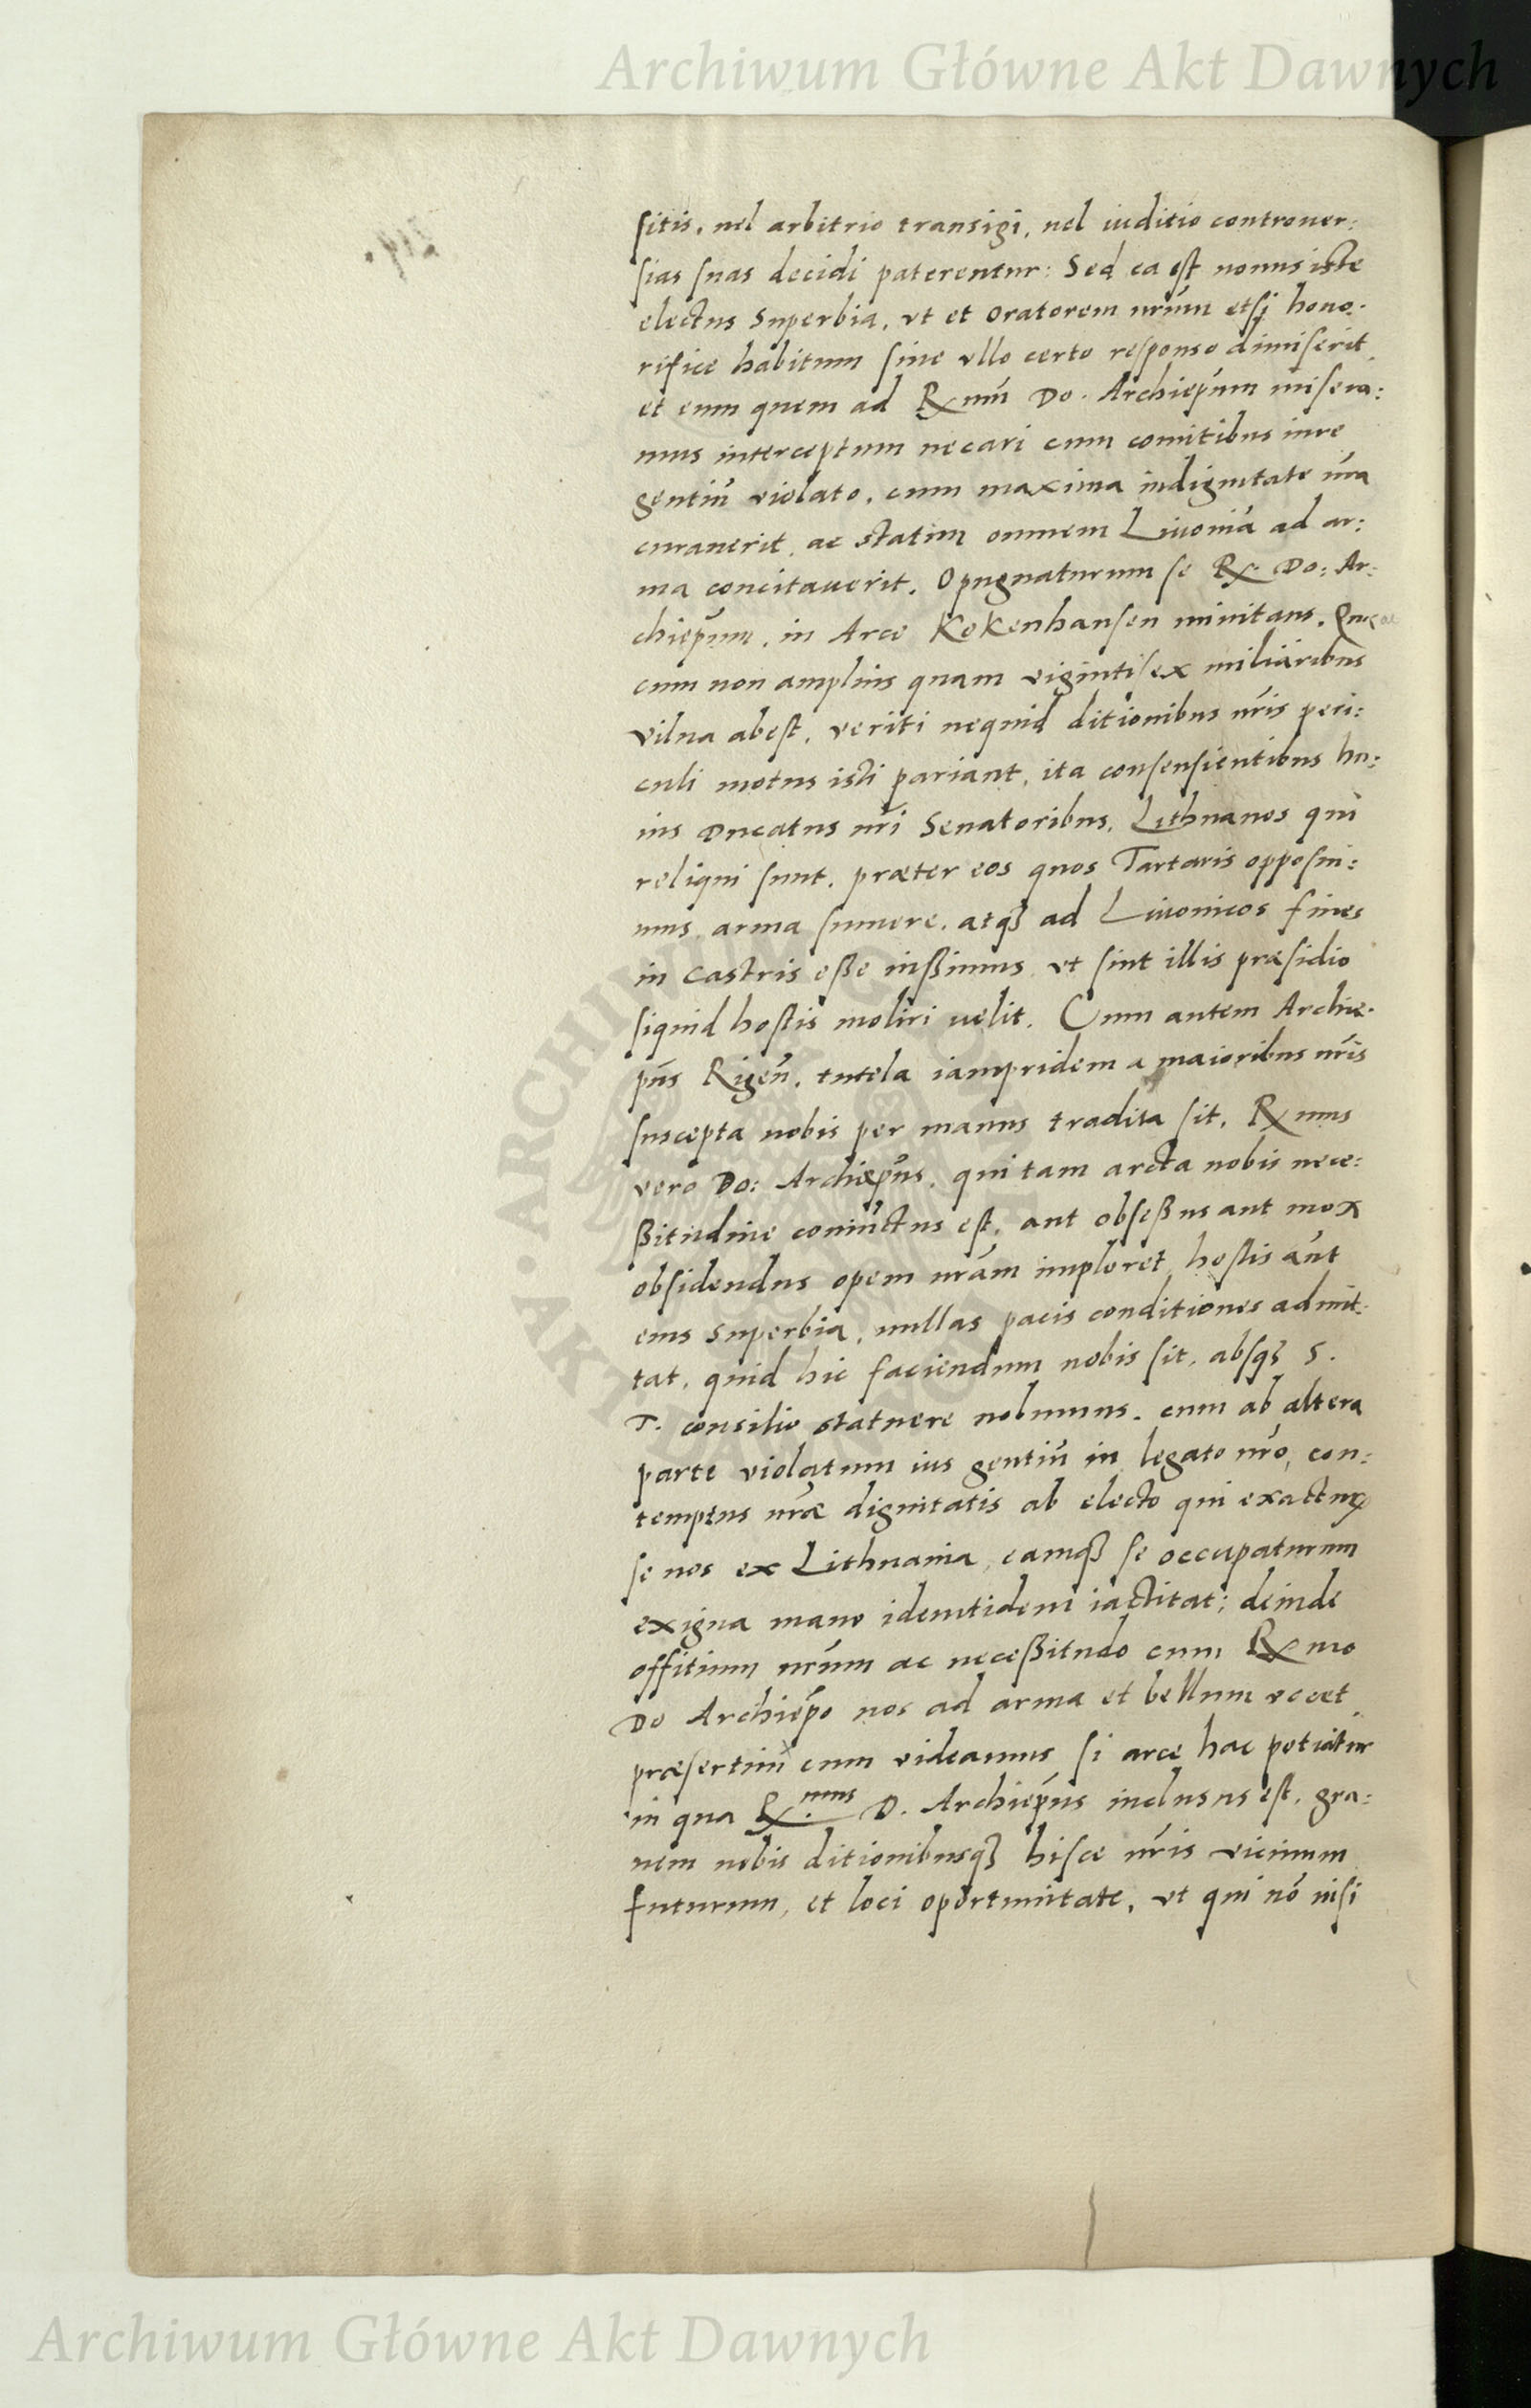 Archiwum Główne Akt Dawnych
sitis, uel arbitrio transigi, uel iuditio controuer:
sias suas decidi paterentur: Sed ea est nouus iste
electus Superbia, vt et oratorem nrūm etsi hono.
rifice habitum sine vllo certo responso dimiserit
et eum quem ad Rx mū Do. Archiep̄um misera:
mus interceptum necari cum comitibus iure
gentiū violato, cum maxima indignitate nr̄a
curauerit, ac statim omnem Liuoniā ad ar:
ma concitauerit. Opugnaturum se Rx Do: Ar:
chiep̄um, in Arce Kokenhausen minitans. Quæ
cum non amplius quam vigintisex miliaribus
vilna abest, veriti nequid ditionibus nr̄is peri:
culi motus isti pariant, ita consensientibus hu:
ius Ducatus nr̄i Senatoribus, Lithuanos qui
reliqui sunt, præter eos quos Tartaris opposui:
mus, arma sumere, atq3 ad Liuonicos fines
in castris eße iußimus, vt sint illis præsidio
siquid hostis moliri uelit. Cum autem Archie.
pūs Rigeñ, tutela iampridem a maioribus nr̄is
suscepta nobis per manus tradita sit, Rx mus
vero Do: Archiep̄us, qui tam arcta nobis nece:
ßitudine coniūctus est, aut obseßus aut mox
obsidendus opem nrām imploret, hostis aūt
eius superbia, nullas pacis conditiones admit.
tat, quid hic faciendum nobis sit, absq3 S.
T. consilio statuere noluimus. cum ab altera
parte violatum ius gentiū in legato nr̄o, con:
temptus nr̄æ dignitatis ab electo qui exacturū
se nos ex Lithuania, eamq3 se occupaturum
exigua manu identidem iactitat; deinde
offitium nrūm ac neceßitudo cum Rx mo
Do Archiep̄o nos ad arma et bellum vocet
præsertim cum videamus si arce hac potiatur
in qua Rx mus D. Archiep̄us inclusus est, gra:
uem nobis ditionibusq3 hisce nr̄is vicinum
futurum, et loci oportunitate, vt qui nō nisi
Archiwum Główne Akt Dawnych